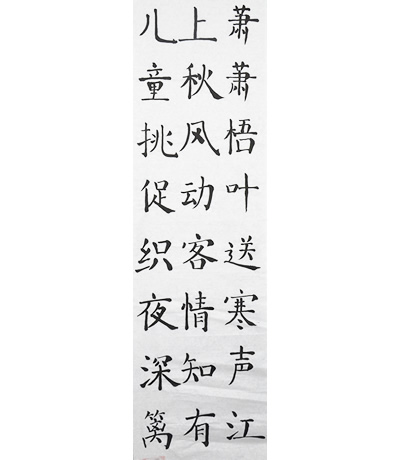 萧萧梧叶送寒声江
上秋风动客情知有
儿童挑促织夜深篱